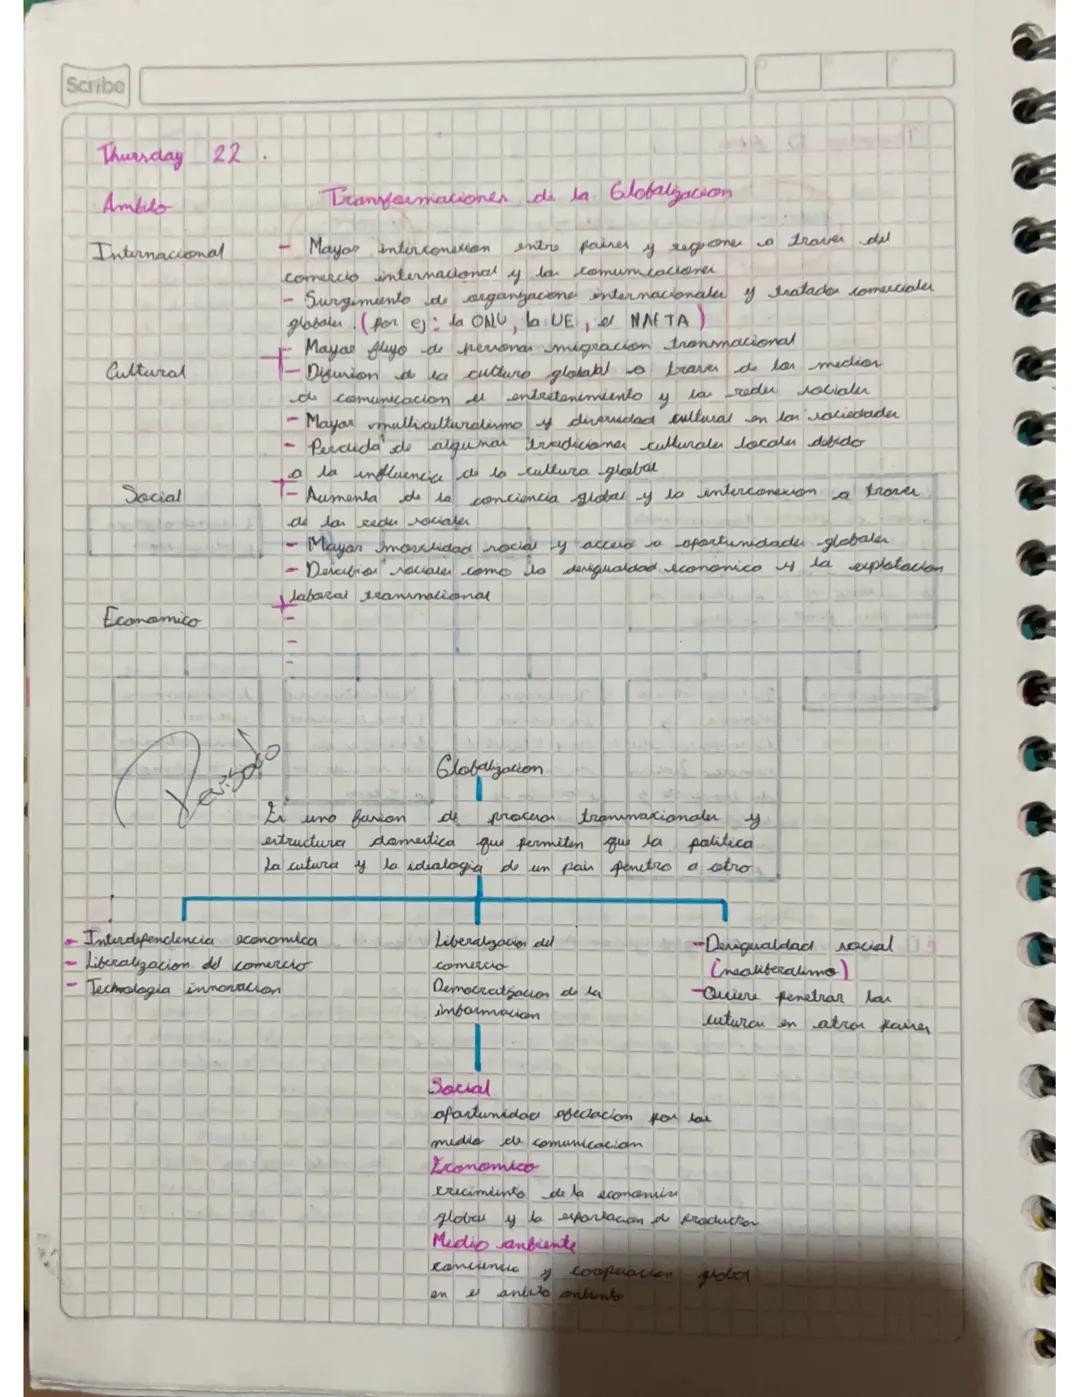 Scribe
Thursday 22.
Ambito Transformaciones de la Globalizacion
Internacional - Mayor interconexion entre paises y regiones a traves del
comercio internacional y las comunicaciones
- Surgimiento de organizaciones internacionales y tratados comerciales
globales. (por ej: la ONU, la UE, el NAFTA)
Mayor flujo de personas migracion transnacional
Cultural - Difusion de la cultura global a traves de los medios
de comunicacion el entretenimiento y las redes sociales
- Mayor multiculturalismo y diversidad cultural en las sociedades
- Perdida de algunas tradiciones culturales locales debido
a la influencia de la cultura global
Social - Aumenta de la conciencia global y la interconexion a traves
de las redes sociales
- Mayor movilidad social y acceso a oportunidades globales
- sociales como la desigualdad economico y la explotacion
laboral transnacional
Economico -
-
-
Revisado
Globalizacion
Es una fusion de procesos transnacionales y
estructura domestica que permiten que la politica
la cutura y la idialogia de un pais penetro a otro
- Interdependencia economica
- Liberalizacion del comercio
- Technologia innovacion
Liberalizacion del
comercio
Democratizacion de la
informacion
- Desigualdad social
(neoliberalimo)
- Quiere penetrar las
cuturas en otros paises
Social
oportunidad afectacion por los
medio de comunicacion
Economico
crecimiento de la economia
global y la exportacion de productos
Medio ambiente
conciencia y cooperacion global
en el